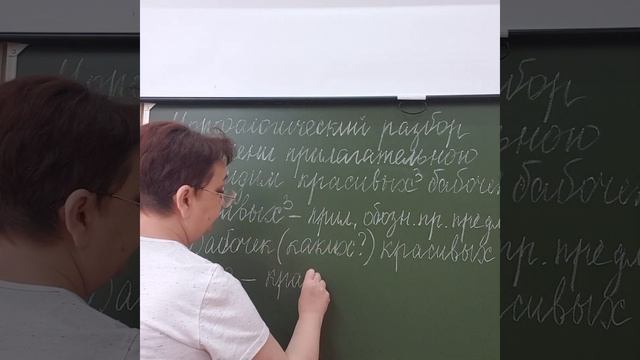 Морфологический разбор
мени прилагательного
дим красивых³ бабочек
ивых³ – прил, обозн. пр. предм
бабочек (каких?) красивых
– кра